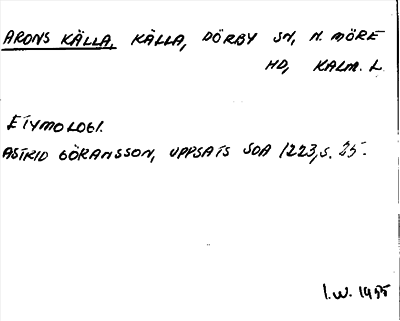 ARONS KÄLLA, KÄLLA, DÖRBY SN, N. MÖRE
HD, KALM. L.
ETYMOLOGI.
ASTRID GÖRANSSON, UPPSATS SOA 1223, S. 25.
I.W. 1995